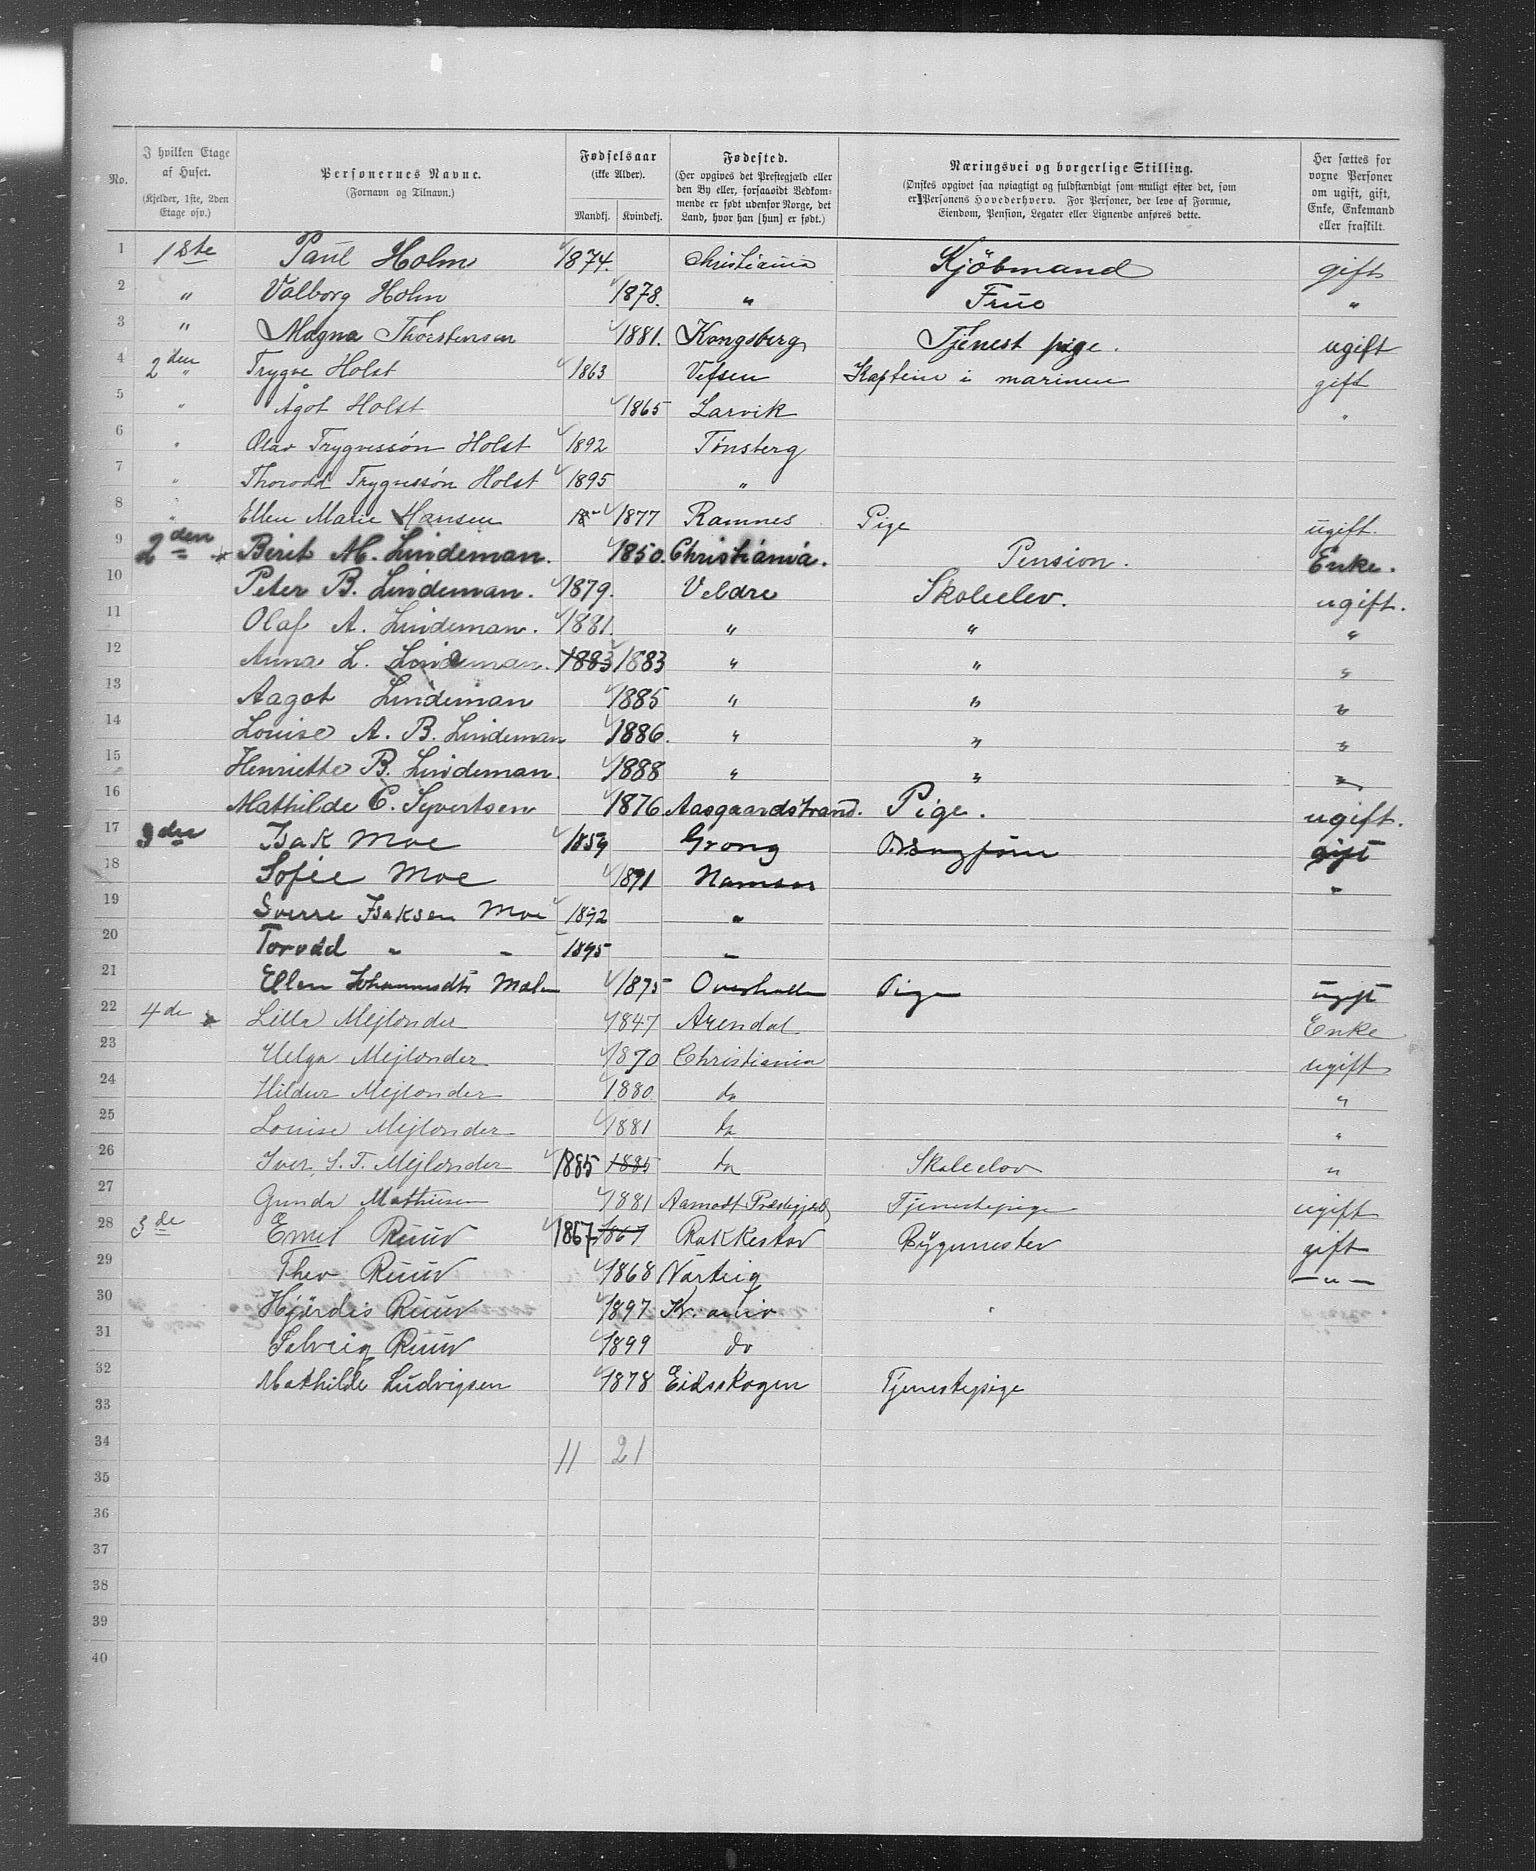 No. I hvilken Etage af Huset. (Kjelder, 1ste, 2den Etage osv.) Personernes Navne. (Fornavn og Tilnavn.) Fødselsaar (ikke Alder). Mandkj. Kvindekj. Fødested. (Her opgives det Præstegjæld eller den By eller, forsaavidt Vedkommende er født udenfor Norge, det Land, hvor han [hun] er født.) Næringsvei og borgerlige Stilling. (Ønskes opgivet saa nøiagtigt og fuldstændigt som muligt efter det, som er Personens Hovederhverv. For Personer, der leve af Formue, Eiendom, Pension, Legater eller Lignende anføres dette. Her sættes for voxne Personer om ugift, gift, Enke, Enkemand eller fraskilt.
1 1ste Paul Holm 1874. Christiania Kjöbmand gift
2 " Valborg Holm 1878. " Frue "
3 " Magna Thorstensen 1881. Kongsberg Tjenest pige. ugift
4 2den " Trygve Holst 1863 Vefsen Kaptein i marinen gift
5 " Ågot Holst 1865 Larvik "
6 " Olav Trygvessön Holst 1892 Tönsberg
7 " Thorodd Trygvessön Holst 1895 "
8 " Ellen Marie Hansen 18 1877 Ramnes Pige ugift.
9 2den Berit M. Lindeman. 1850. Christiania. Pension. Enke.
10 Peter B. Lindeman. 1879. Veldre Skoleelev. ugift.
11 Olaf A. Lindeman. 1881. " " "
12 Anna L. Lindeman. 1883 1883 " " "
13 Aagot Lindeman 1885 " " "
14 Louise A. B. Lindeman 1886. " " "
15 Henriette B. Lindeman. 1888 " " "
16 Mathilde C. Syvertsen 1876 Aasgaardstrand. Pige. ugift.
17 3die Isak Moe 1859 Grong gift
18 Sofie Moe 1871 Namsos "
19 Sverre Isaksen Moe 1892 "
20 Torodd " " 1895 "
21 Ellen 1875 Overhallen Pige ugift
22 4de Lilla Mejlænder 1847 Arendal Enke
23 Helga Mejlænder 1870 Christiania ugift
24 Hildur Mejlænder 1880 do "
25 Louise Mejlænder 1881 do "
26 Iver S. T. Mejlænder 1885 1885 do Skoleelev "
27 Gunda Mathisen 1881 Aamodt Præstegjæld Tjenestepige ugift
28 3de Emil Ruud 1867 1867 Rakkestad Bygmester gift
29 Thea Ruud 1868 Varteig — " —
30 Hjördis Ruud 1897 Kr.ania
31 Solveig Ruud 1899 do
32 Mathilde Ludvigsen 1878 Eidsskogen Tjenestepige
33
34 11 21
35
36
37
38
39
40